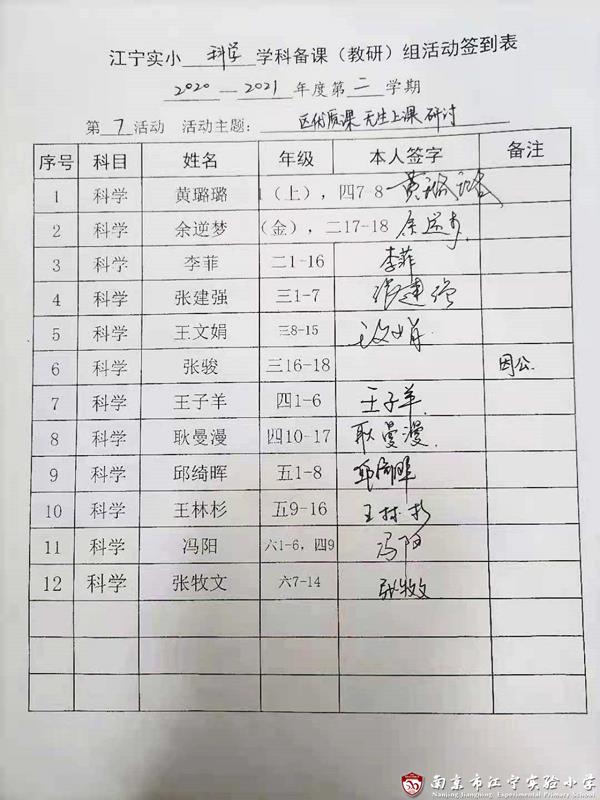 江宁实小 科学 学科备课（教研）组活动签到表
2020 — 2021 年度第 二 学期
第 7 活动 活动主题： 区优质课 无生上课 研讨
序号 科目 姓名 年级 本人签字 备注
1 科学 黄璐璐 1（上），四7-8 黄璐璐
2 科学 余逆梦 （金），二17-18 余逆梦
3 科学 李菲 二1-16 李菲
4 科学 张建强 三1-7 张建强
5 科学 王文娟 三8-15 王文娟
6 科学 张骏 三16-18 因公.
7 科学 王子羊 四1-6 王子羊.
8 科学 耿曼漫 四10-17 耿曼漫.
9 科学 邱绮晖 五1-8 邱绮晖
10 科学 王林杉 五9-16 王林杉
11 科学 冯阳 六1-6，四9 冯阳
12 科学 张牧文 六7-14 张牧文
南京市江宁实验小学
Nanjing Jiangning Experimental Primary School